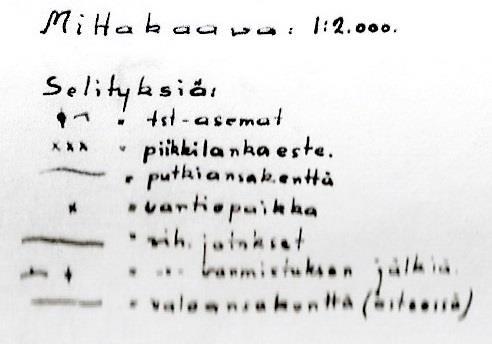 Mittakaava: 1:2.000.
Selityksiä:
" tst-asemat
xxx " piikkilankaeste.
" putkiansakenttä
x " vartiopaikka
" vih. jäinkset
" -"- varmistuksen jälkiä.
"